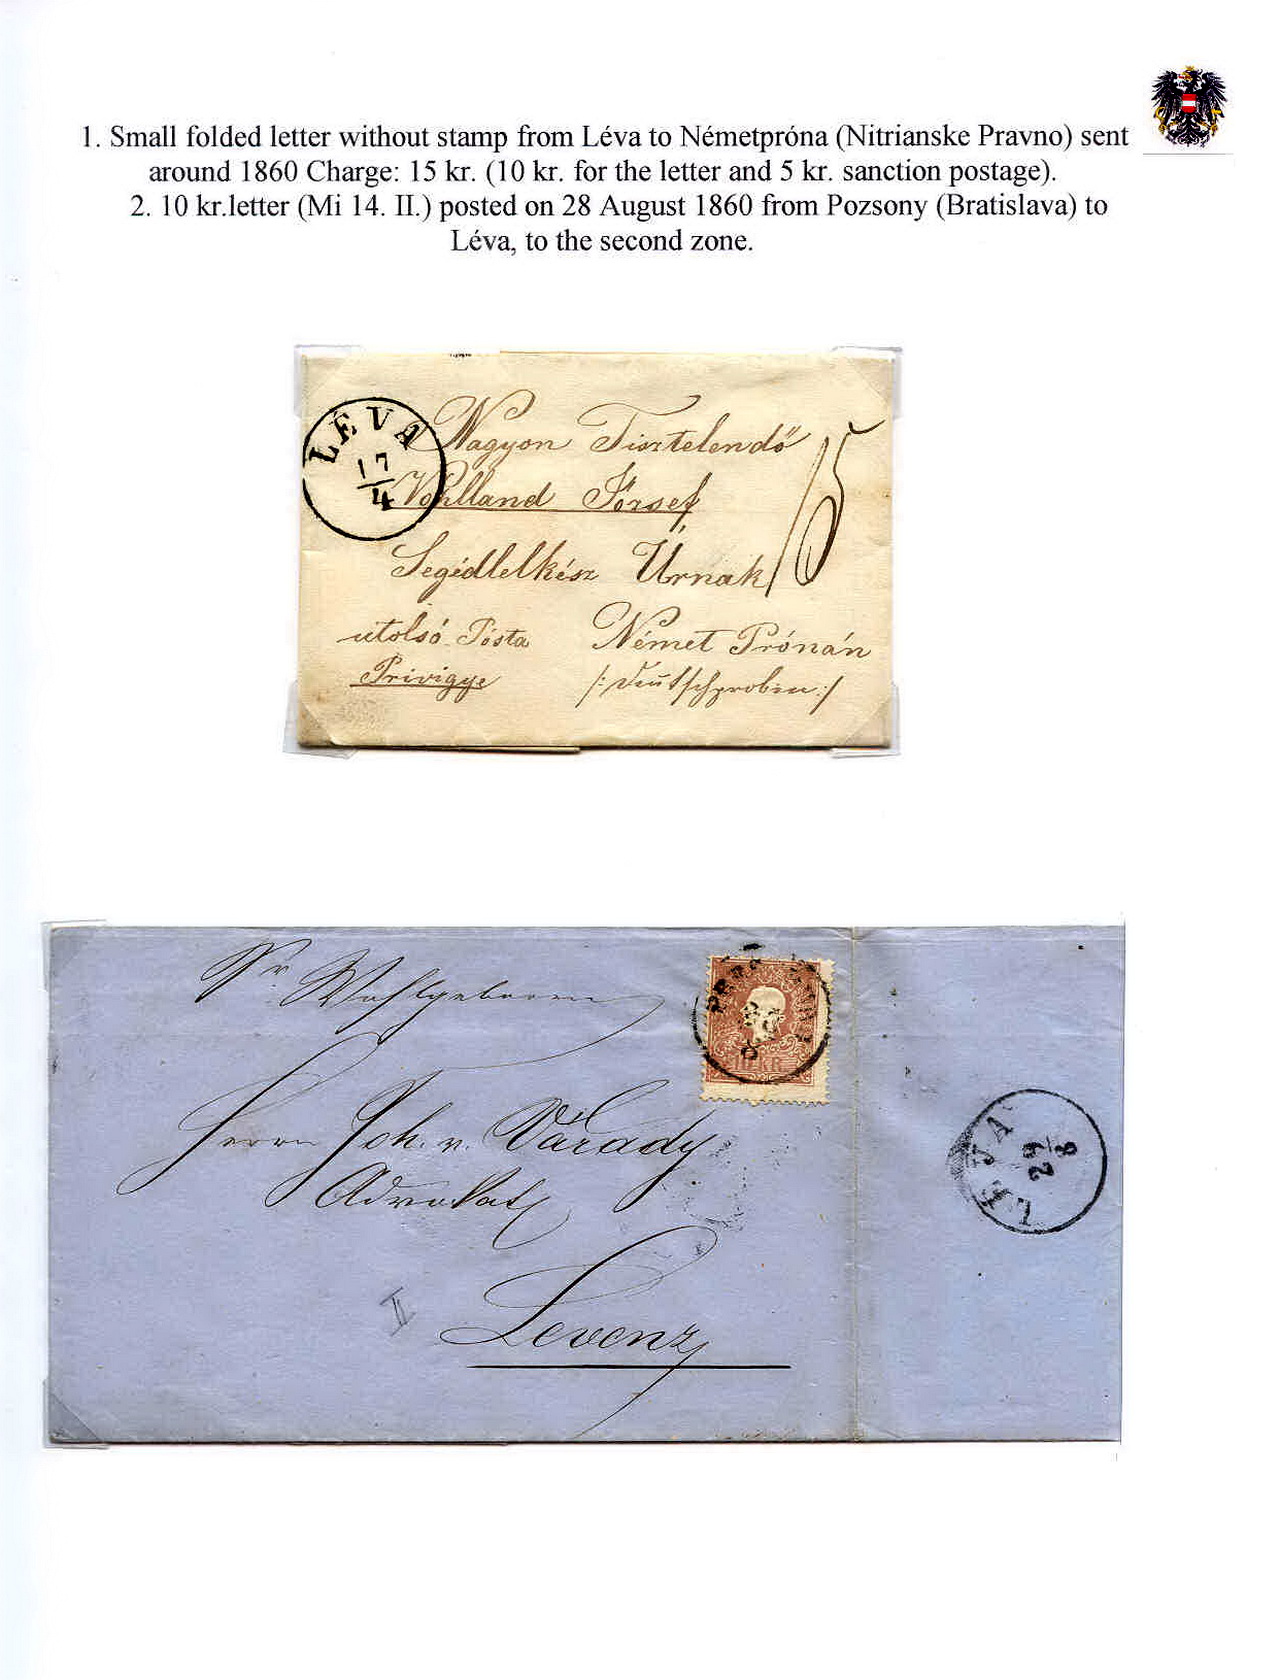 1. Small folded letter without stamp from Léva to Németpróna (Nitrianske Pravno) sent
around 1860 Charge: 15 kr. (10 kr. for the letter and 5 kr. sanction postage).
2. 10 kr.letter (Mi 14. II.) posted on 28 August 1860 from Pozsony (Bratislava) to
Léva, to the second zone.
LÉVA
17
4
Nagyon Tisztelendő
József
Segédlelkész Úrnak
15
utolsó Pósta
Német Prónán
Privigye
/: Deutschproben :/
Sr Wohlgeboren
10 KR
Herrn Joh. v. Várady
Advokat
Levenz
II
LÉVA
29
8